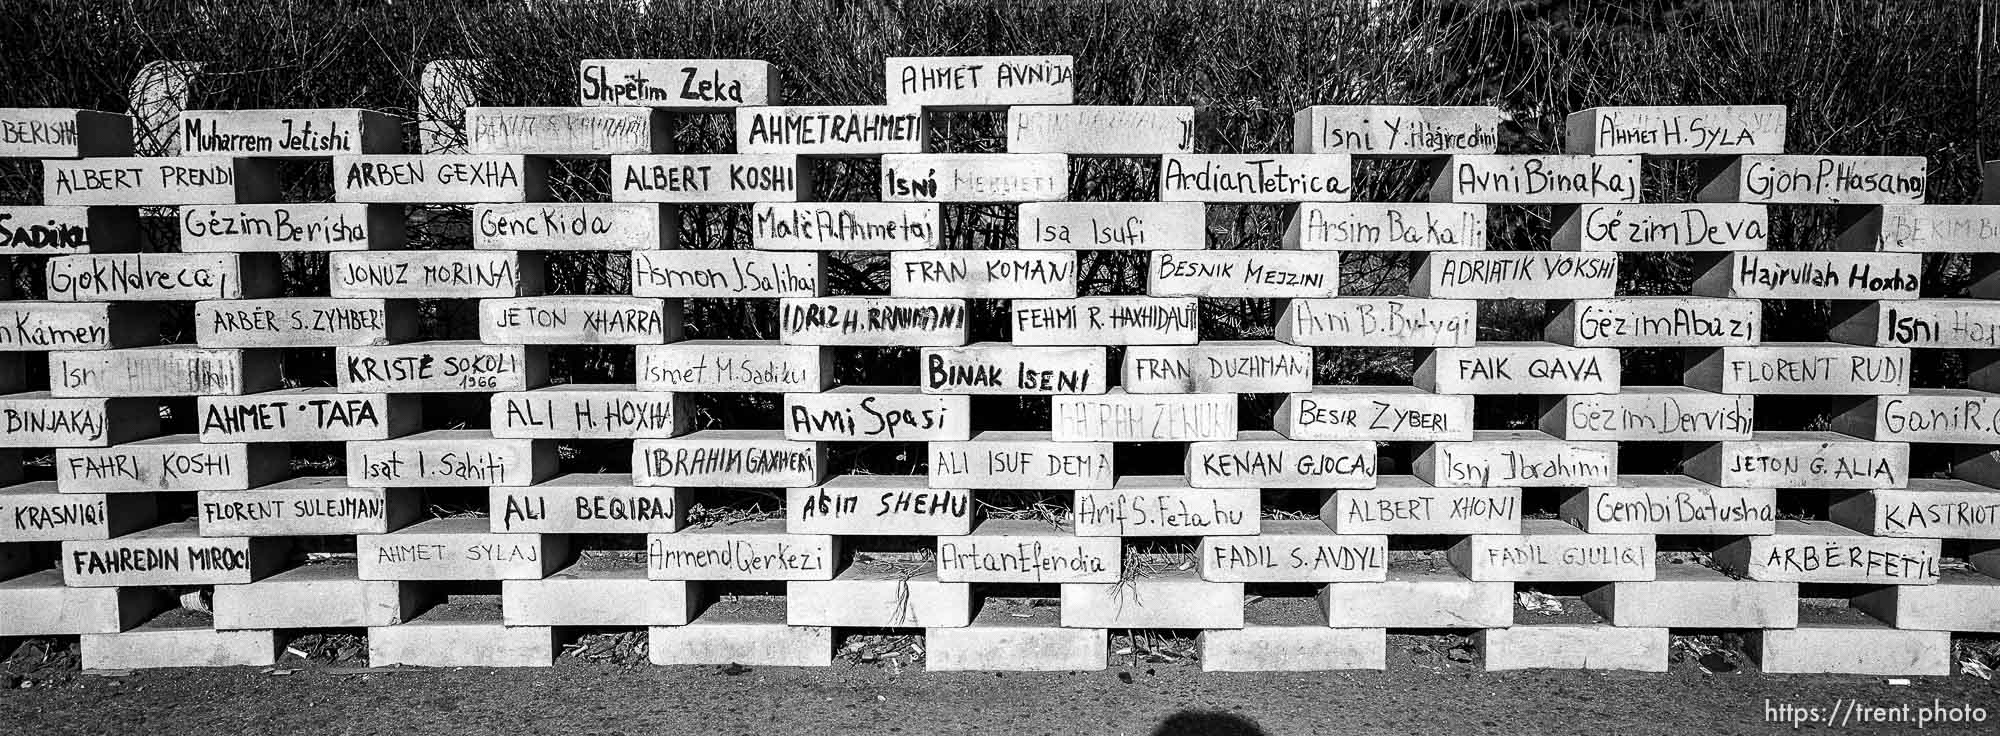 Shpëtim Zeka
AHMET AVNIJA
BERISHA
Muharrem Jetishi
AHMETRAHMETI
Isni Y. Hágredini
AHMET H. SYLA
ALBERT PRENDI
ARBEN GEXHA
ALBERT KOSHI
ISNÍ MEHMETI
ArdianTetrica
AvniBinaKaj
Gjon P. Hasanaj
SADIKU
GëzimBerisha
GencKida
Malë A. Ahmetaj
Isa Isufi
Arsim Bakalli
GëzimDeva
BEKIM
GjokNdrecaj
JONUZ MORINA
Asmon J. Salihaj
FRAN KOMANI
BESNIK MEJZINI
ADRIATIK VOKSHI
Hajrullah Hoxha
Kámen
ARBËR S. ZYMBERI
JETON XHARRA
IDRIZ H. RRAHMANI
FEHMI R. HAXHIDAUTI
Avni B. Bytyqi
GëzimAbazi
ISNI
Isni
KRISTË SOKOLI
1966
Ismet M. Sadiku
BINAK ISENI
FRAN DUZHMANI
FAIK QAVA
FLORENT RUDI
BINJAKAJ
AHMET · TAFA
ALI H. HOXHA
Avni Spasi
BAJRAM ZENUNI
BESIR ZYBERI
Gëzim Dervishi
Gani R.
FAHRI KOSHI
Isat I. Sahiti
IBRAHIM GAXHERI
ALI ISUF DEMA
KENAN GJOCAJ
Isni Ibrahimi
JETON G. ALIA
KRASNIQI
FLORENT SULEJMANI
ALI BEQIRAJ
AGIM SHEHU
Arif S. Fetahu
ALBERT XHONI
Gembi Batusha
KASTRIOT
FAHREDIN MIROCI
AHMET SYLAJ
Armend Qerkezi
ArtanEfendia
FADIL S. AVDYLI
FADIL GJULIQI
ARBËR FETIL
https://trent.photo